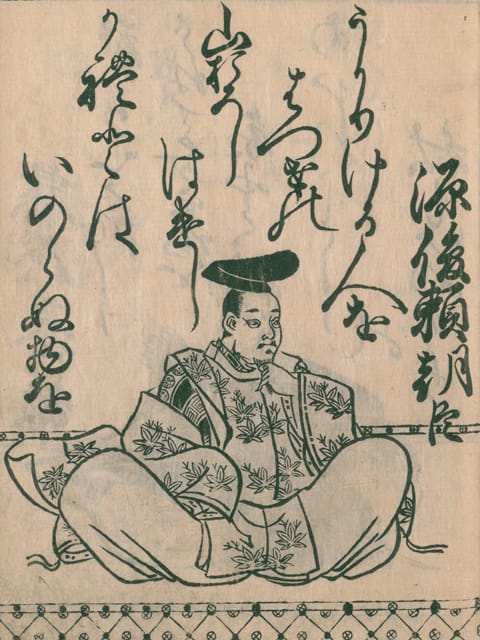 源俊頼朝臣
うかりける人を
はつせの
山おろし
はけし
か禮とは
いのらぬ物を